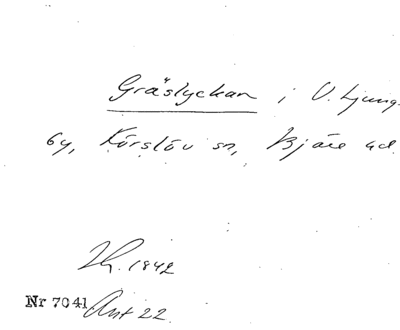 Gräslyckan i V. Ljung
by, Kärslöv sn, Bjäre hd.
1842
Nr 7041 Ant 22.